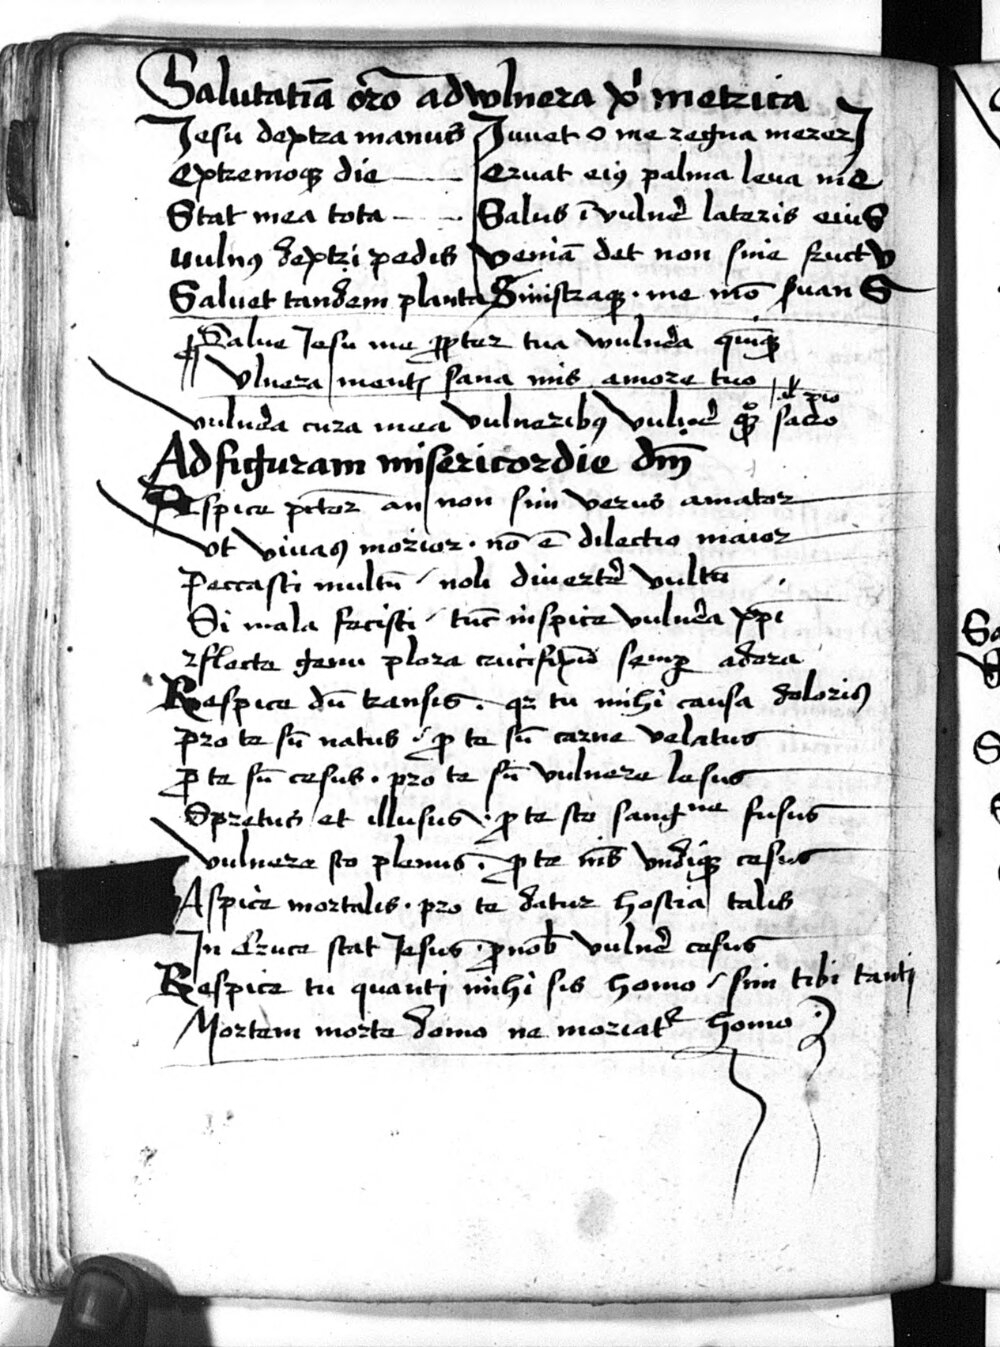 Salutatiã orõ ad wlnera xp̄i metrica
Jesu dextra manus Juuet o me regna mererJ
Extremoqꝫ die Eruat eiꝰ palma leua mE
Stat mea tota Salus ĩ vulnē lateris eiuS
uulnꝰ dextri pedis veniã det non sine fructV
Saluet tandem planta Sinistraqꝫ · me mō suan S
Salue Jesu me ꝓpter tua wulnēa quīqꝫ
Vlnera mentis sana mis amore tuo
vulnēa cura mea vulneribꝰ vulnē sacro
pio
Ad figuram misericordie dñi
Respice pctor an non sim verus amator
vt viuas morior · nō ē dilectio maior
Peccasti multū / noli diuertē vultū
Si mala fecisti / tūc inspice vulnēa xp̄i
rflecte genu plora crucifixū semp adora
Respice dū transis · qꝫ tu mihi causa doloris
Pro te sū natus · ꝓ te sū carne velatus
ꝓ te sū cesus · pro te sū vulnere lesus
Spretus et illusus · ꝓ te sto sangne fusus
Vulnere sto plenus · ꝓ te vndiqꝫ cesus
Aspice mortalis · pro te datur hostia talis
In Cruce stat Jesus · ꝓ nob vulnē cesus
Respice tu quanti mihi sis homo / sim tibi tanti
Mortem morte domo ne moriatr homo